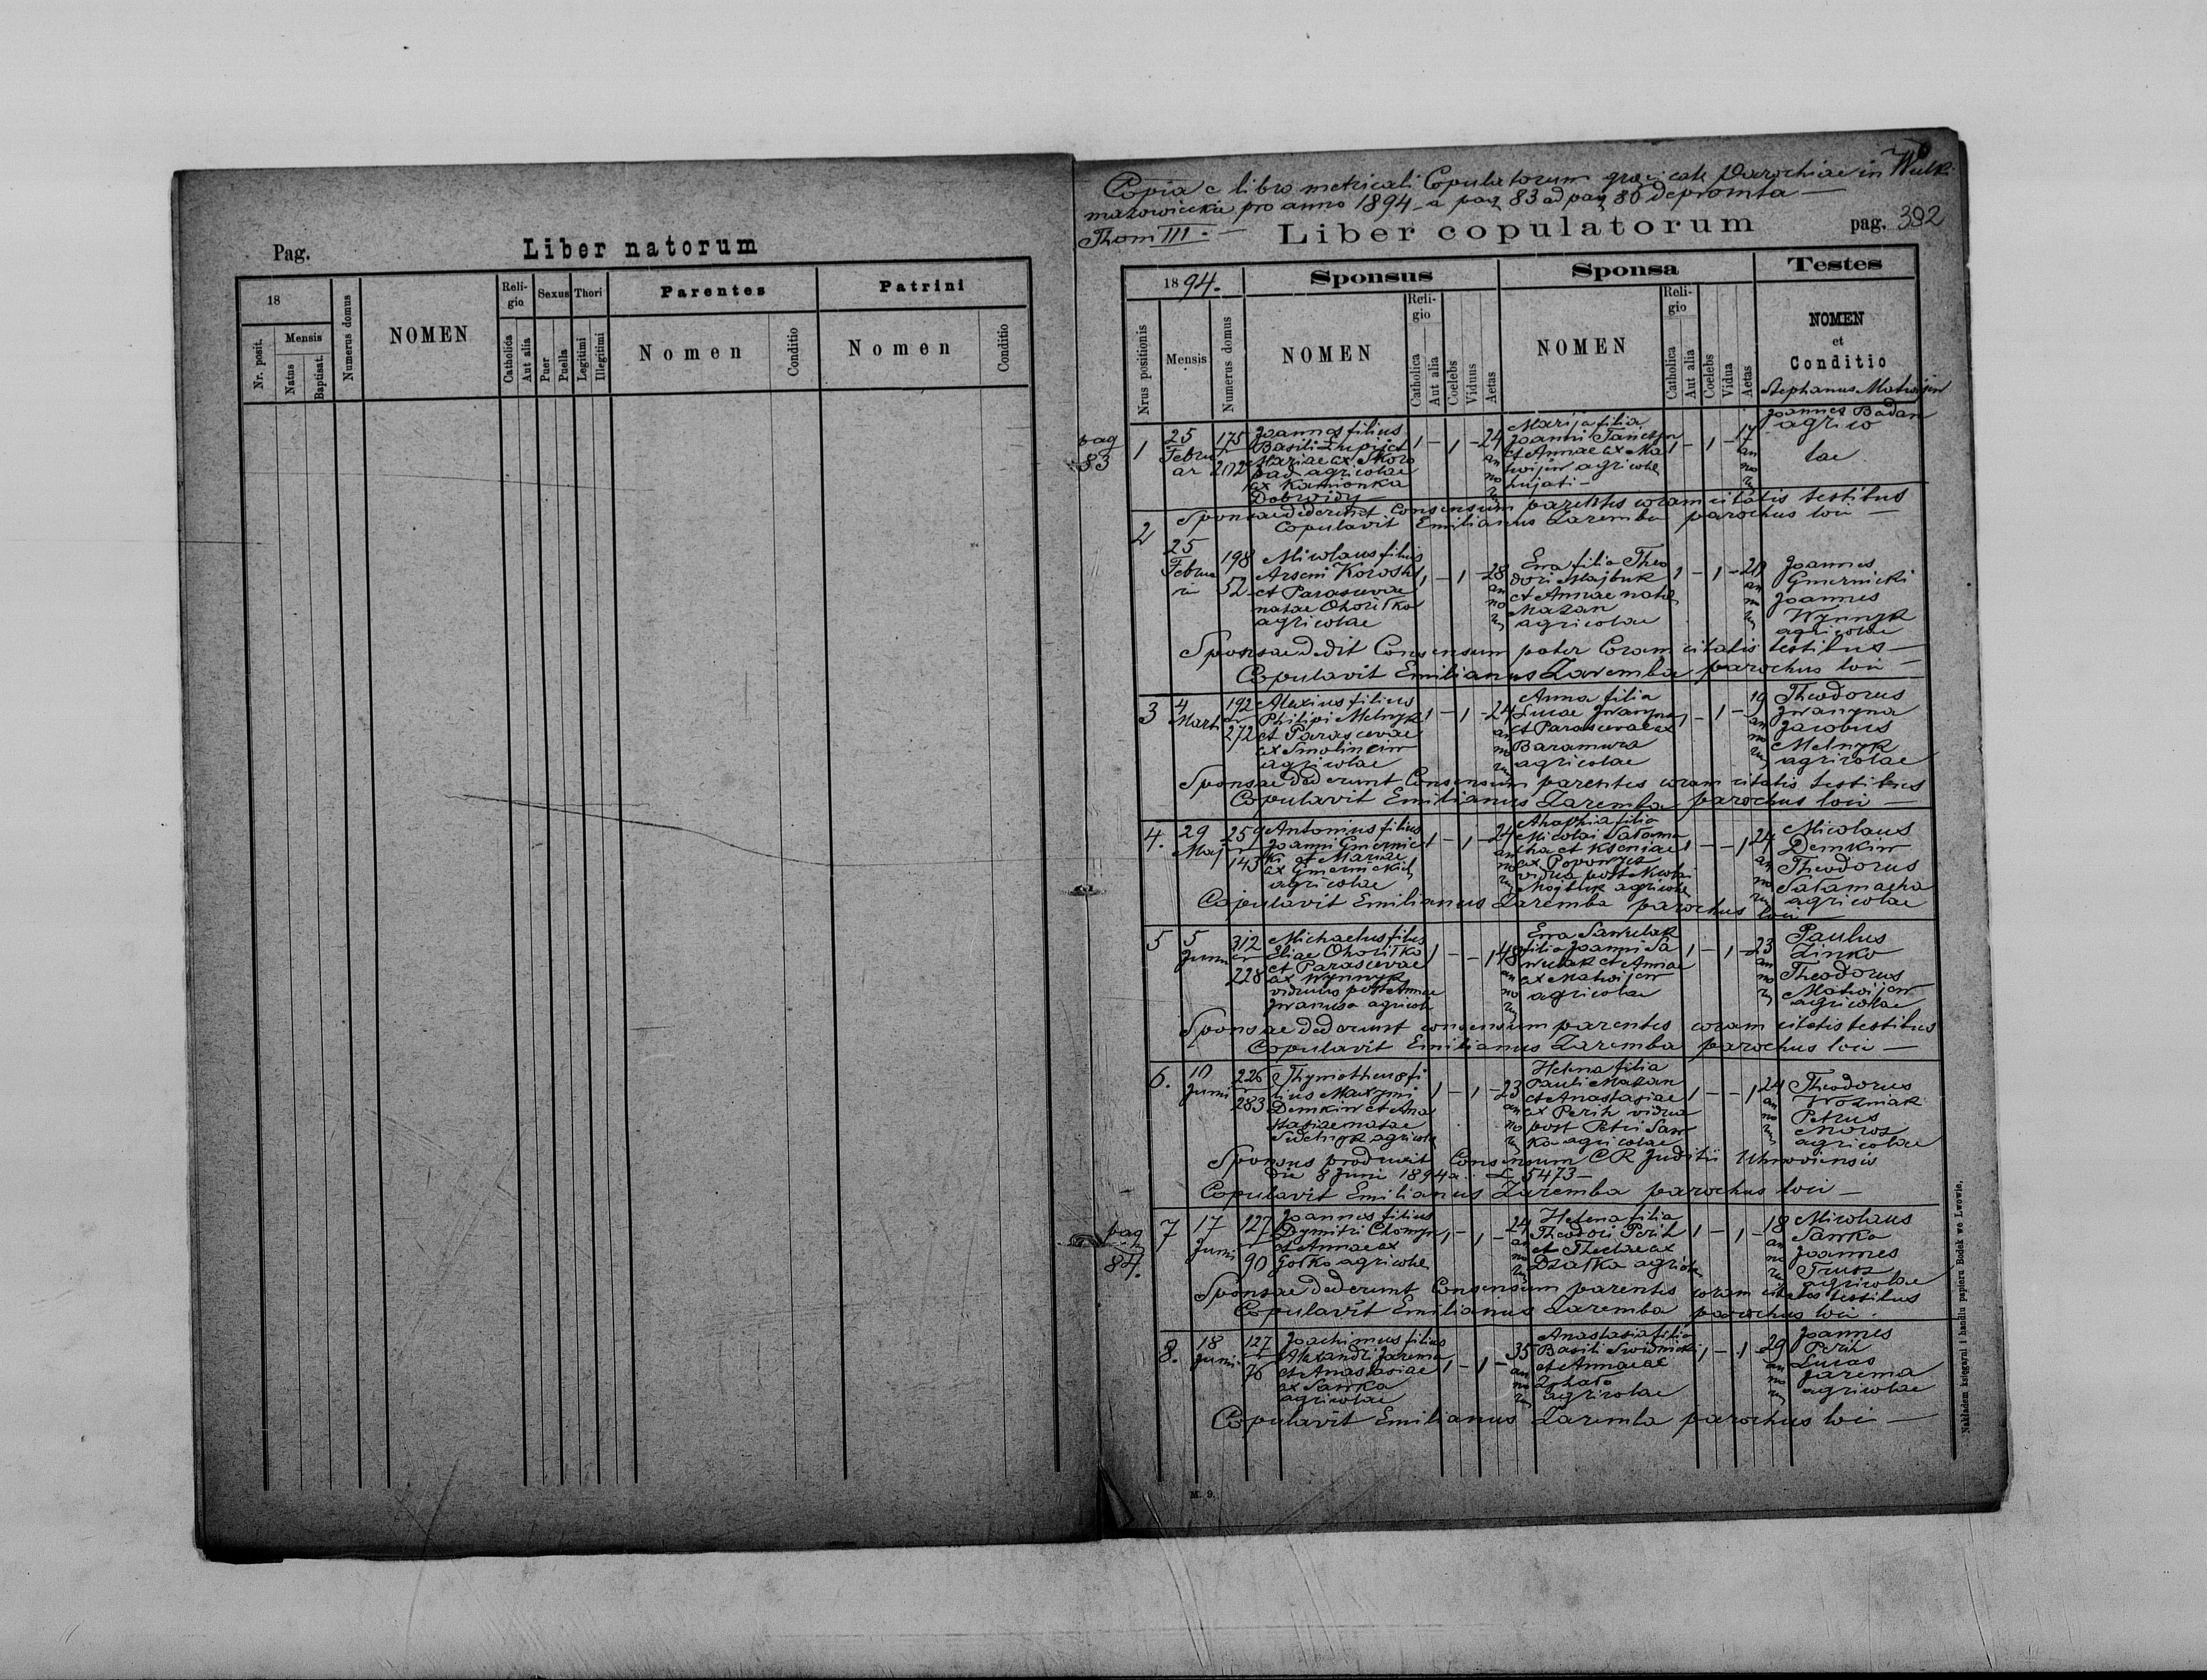 Pag.
Liber natorum
18
Mensis
Nr. posit.
Natus
Baptisat.
Numerus domus
NOMEN
Reli-
gio
Catholica
Aut alia
Sexus
Puer
Puella
Thori
Legitimi
Illegitimi
Parentes
Nomen
Conditio
Patrini
Nomen
Conditio
Copia e libro metricali Copulatorum graeci cath Parochiae in Wulki
mazowiecka pro anno 1894 a pag 83 ad pag 86 depromta —
Thom III. —
Liber copulatorum
pag. 392
1894.
Nrus positionis
Mensis
Numerus domus
Sponsus
NOMEN
Reli-
gio
Catholica
Aut alia
Coelebs
Viduus
Aetas
Sponsa
NOMEN
Reli-
gio
Catholica
Aut alia
Coelebs
Vidua
Aetas
Testes
NOMEN
et
Conditio
Stephanus Matwijiw
Joannes Badan
agrico
lae
pag
83
1
25
Februar
175
202
Joannes filius
Basili
Mariae ex Skoro
pad agricolae
ex Kamionka
1 – 1 – 24
an
no
Marija filia
Joanni
et Annae ex Ma
twijiw agricolae
hujati
1 – 1 – 17
an
no
Sponsae dederunt Consensum parentes coram citatis testibus
Copulavit Emilianus Zaremba parochus loci —
2
25
Februa
ri
198
52
Nicolaus filius
Arseni Korosh
et Parascevae
natae Ohoritko
agricolae
1 – 1 – 28
an
no
Eva filia Theo
dori Majbuk
et Annae natae
Mazan
agricolae
1 – 1 – 20
an
no
Joannes
Gmernicki
Joannes
Wynnyk
agricolae
Sponsae dedit Consensum pater Coram citatis testibus —
Copulavit Emilianus Zaremba parochus loci —
3
4
Marti
192
272
Alexius filius
Philipi Melnyk
et Parascevae
ex Smolinciw
agricolae
1 – 1 – 24
an
no
rum
Anna filia
Lucae Iwanyna
et Parascevae ex
Baramura
agricolae
1 – 1 – 19
an
no
Theodorus
Iwanyna
Jacobus
Melnyk
agricolae
Sponsae dederunt Consensum parentes coram citatis testibus
Copulavit Emilianus Zaremba parochus loci —
4.
29
Maj
259
143
Antonius filius
Joanni Gmernic
ki et Mariae
ex Gmernickich
agricolae
1 – 1 – 24
an
no
Ahaphia filia
Nicolai Salama
cha et Kseniae
ex Popowycz
vidua post Nicolai
Majbuk agricolae
1 – – 1 24
an
no
Nicolaus
Demkiw
Theodorus
Salamacha
agricolae
Copulavit Emilianus Zaremba parochus loci —
5
5
Juni
312
228
Michaelus filius
Eliae Ohoritko
et Parascevae
ex Wynnyk
viduus post Annae
Iwanusa agricolae
1 – – 1 48
an
no
Eva Sawulak
filia Joanni Sa
wulak et Annae
ex Matwijiw
agricolae
1 – 1 – 23
an
no
Paulus
Zinko
Theodorus
Matwijiw
agricolae
Sponsae dederunt consensum parentes coram citatis testibus
Copulavit Emilianus Zaremba parochus loci —
6.
10
Juni
226
283
Thymotheus fi
lius Maxymi
Demkiw et Ana
stasiae natae
agricolae
1 – 1 – 23
an
no
Helena filia
Pauli Mazan
et Anastasiae
ex Perih vidua
post Petri Saw
ka agricolae
1 – – 1 24
an
no
Theodorus
Wozniak
Petrus
Moroz
agricolae
Sponsus produxit Consensum CR Juditii Uhnoviensis
die 8 Juni 1894 a. L 5473 —
Copulavit Emilianus Zaremba parochus loci —
pag
84.
7
17
Juni
127
90
Joannes filius
Dymitri Chomyn
et Annae ex
Gotko agricolae
1 – 1 – 24
an
no
Helena filia
Theodori Perih
et Theclae ex
Dzatka agricolae
1 – 1 – 18
an
no
Nicolaus
Sawka
Joannes
Trusz
agricolae
Sponsae dederunt Consensum parentes coram citatis testibus
Copulavit Emilianus Zaremba parochus loci.
8.
18
Juni
127
76
Joachimus filius
Alexandri Jarema
et Anastasiae
ex Sawka
agricolae
1 – 1 – 35
an
no
Anastasia filia
Basili Swidnicki
et Annae ex
agricolae
1 – 1 – 29
an
no
Joannes
Perih
Lucas
Jarema
agricolae
Copulavit Emilianus Zaremba parochus loci —
M. 9.
Nakładem księgarni i handlu papieru Bodek we Lwowie.